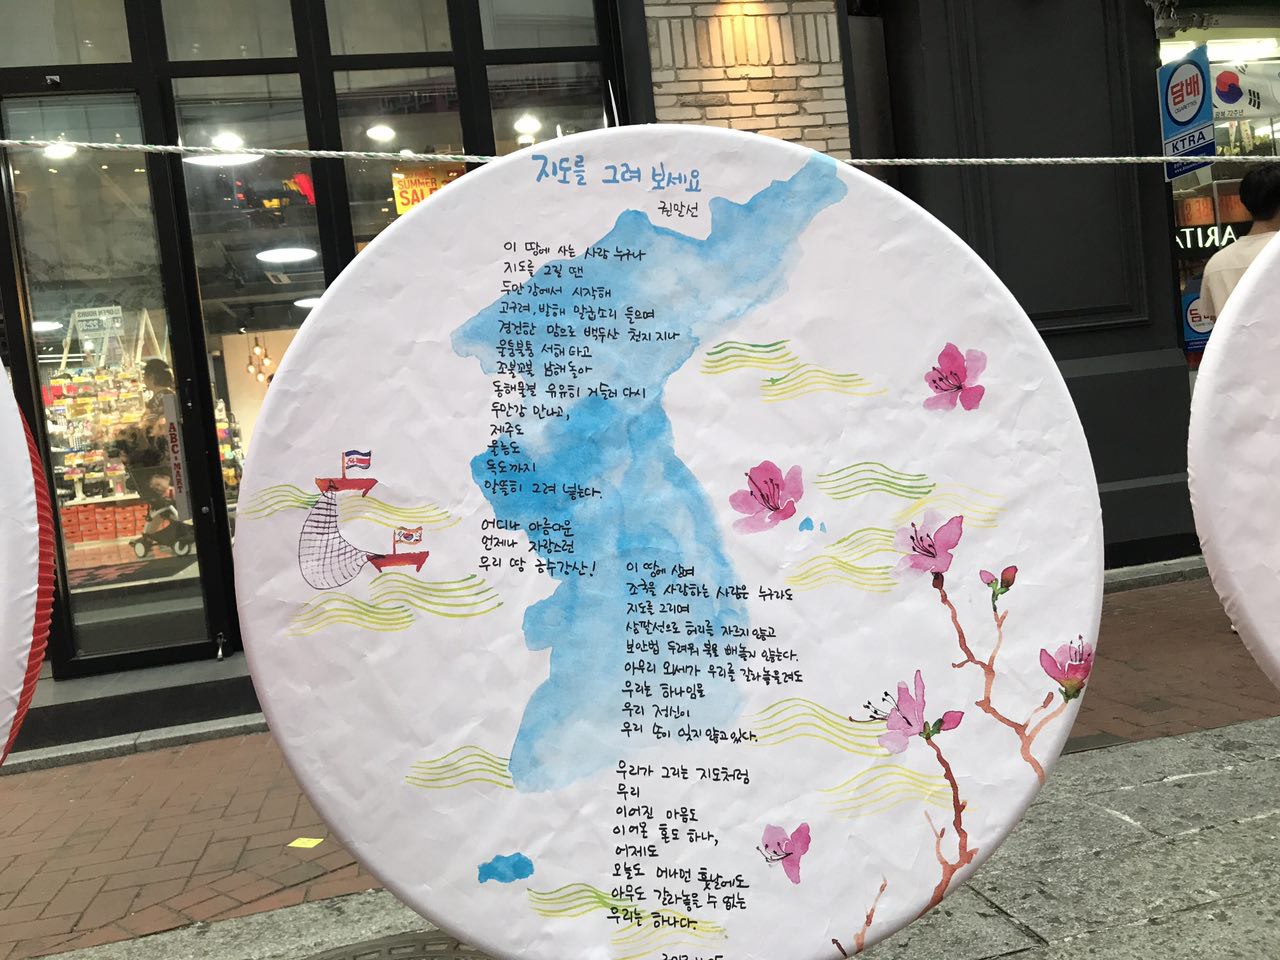 지도를 그려 보세요
권말선
이 땅에 사는 사람 누구나
지도를 그릴 땐
두만강에서 시작해
고구려, 발해 말굽소리 들으며
경건한 맘으로 백두산 천지 지나
울퉁불퉁 서해 타고
조불꼬불 남해 돌아
동해물결 유유히 거슬러 다시
두만강 만나고,
제주도
울릉도
독도까지
알뜰히 그려 넣는다.
어디나 아름다운
언제나 자랑스런
우리 땅 금수강산!
이 땅에 살며
조국을 사랑하는 사람은 누구라도
지도를 그리며
삼팔선으로 허리를 자르지 않고
보안법 두려워 북을 빼놓지 않는다.
아무리 외세가 우리를 갈라놓을려도
우리는 하나임을
우리 정신이
우리 손이 잊지 않고 있다.
우리가 그리는 지도처럼
우리
이어진 마음도
이어온 혼도 하나,
어제도
오늘도 머나먼 훗날에도
아무도 갈라놓을 수 없는
우리는 하나다.
SUMMER
SALE
OPEN HOURS
ABC-MART
담배
CIGARETTES
KTRA
담